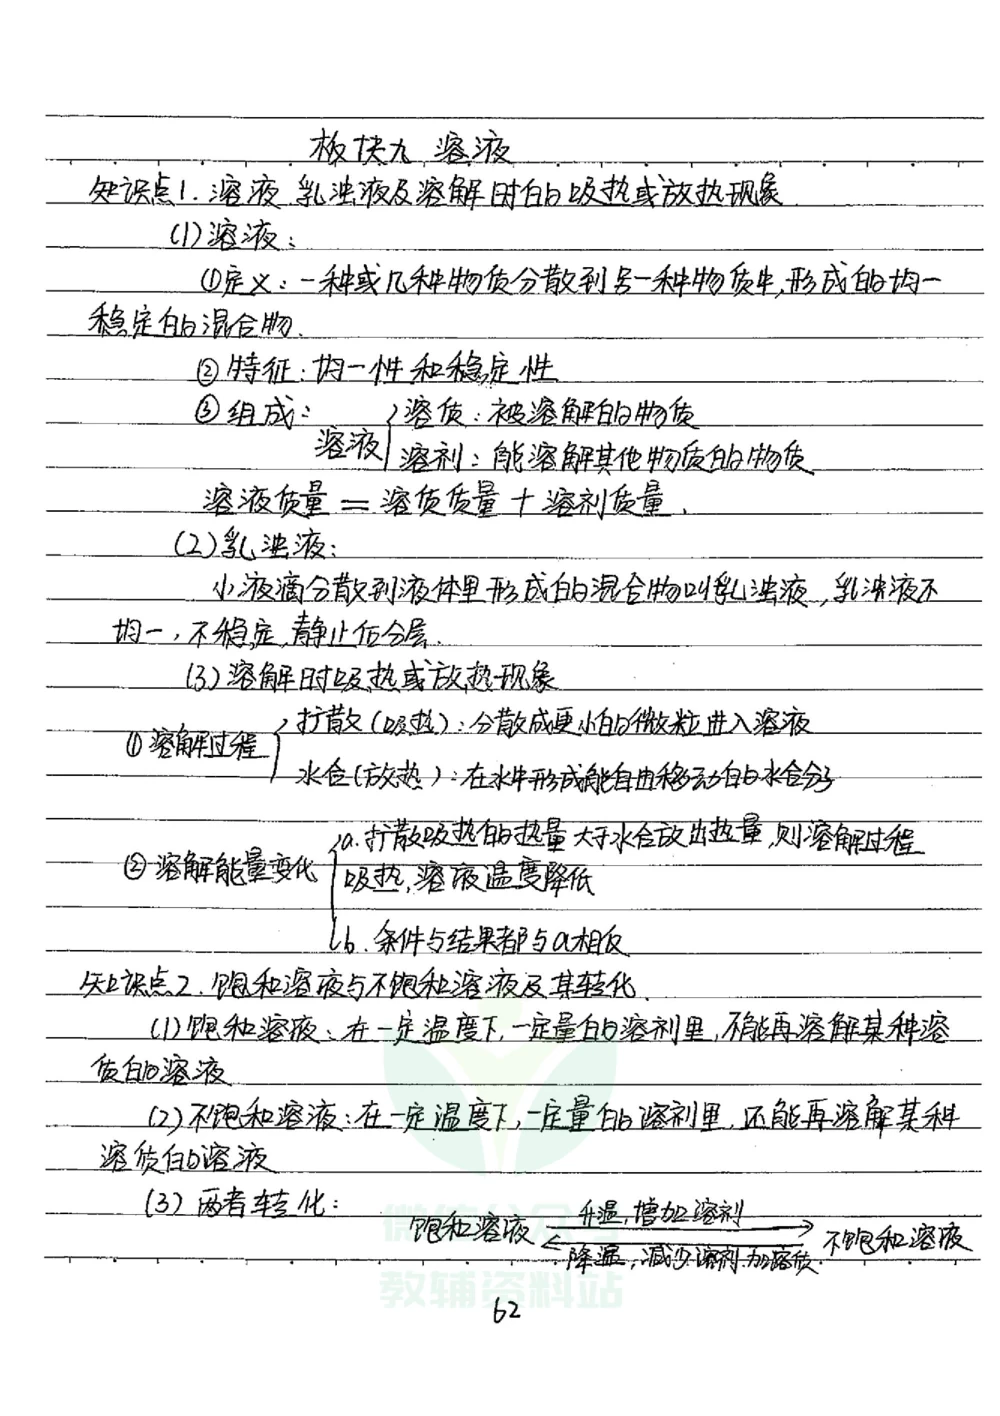 板块九 溶液
知识点1. 溶液、乳浊液及溶解时的吸热或放热现象
(1) 溶液:
①定义: 一种或几种物质分散到另一种物质中,形成的均一
稳定的混合物.
②特征: 均一性和稳定性
③组成:
溶液 溶质: 被溶解的物质
溶剂: 能溶解其他物质的物质
溶液质量 = 溶质质量 + 溶剂质量.
(2) 乳浊液:
小液滴分散到液体里形成的混合物叫乳浊液,乳浊液不
均一,不稳定,静止后分层.
(3) 溶解时吸热或放热现象
①溶解过程 扩散(吸热): 分散成更小的微粒进入溶液
水合(放热): 在水中形成能自由移动的水合分子
②溶解能量变化 a. 扩散吸热的热量大于水合放出热量,则溶解过程
吸热,溶液温度降低
b. 条件与结果都与a相反
知识点2. 饱和溶液与不饱和溶液及其转化.
(1) 饱和溶液: 在一定温度下,一定量的溶剂里,不能再溶解某种溶
质的溶液
(2) 不饱和溶液: 在一定温度下,一定量的溶剂里,还能再溶解某种
溶质的溶液
(3) 两者转化:
饱和溶液 升温,增加溶剂 不饱和溶液
降温,减少溶剂.加溶质.
微信公众号
教辅资料站
62